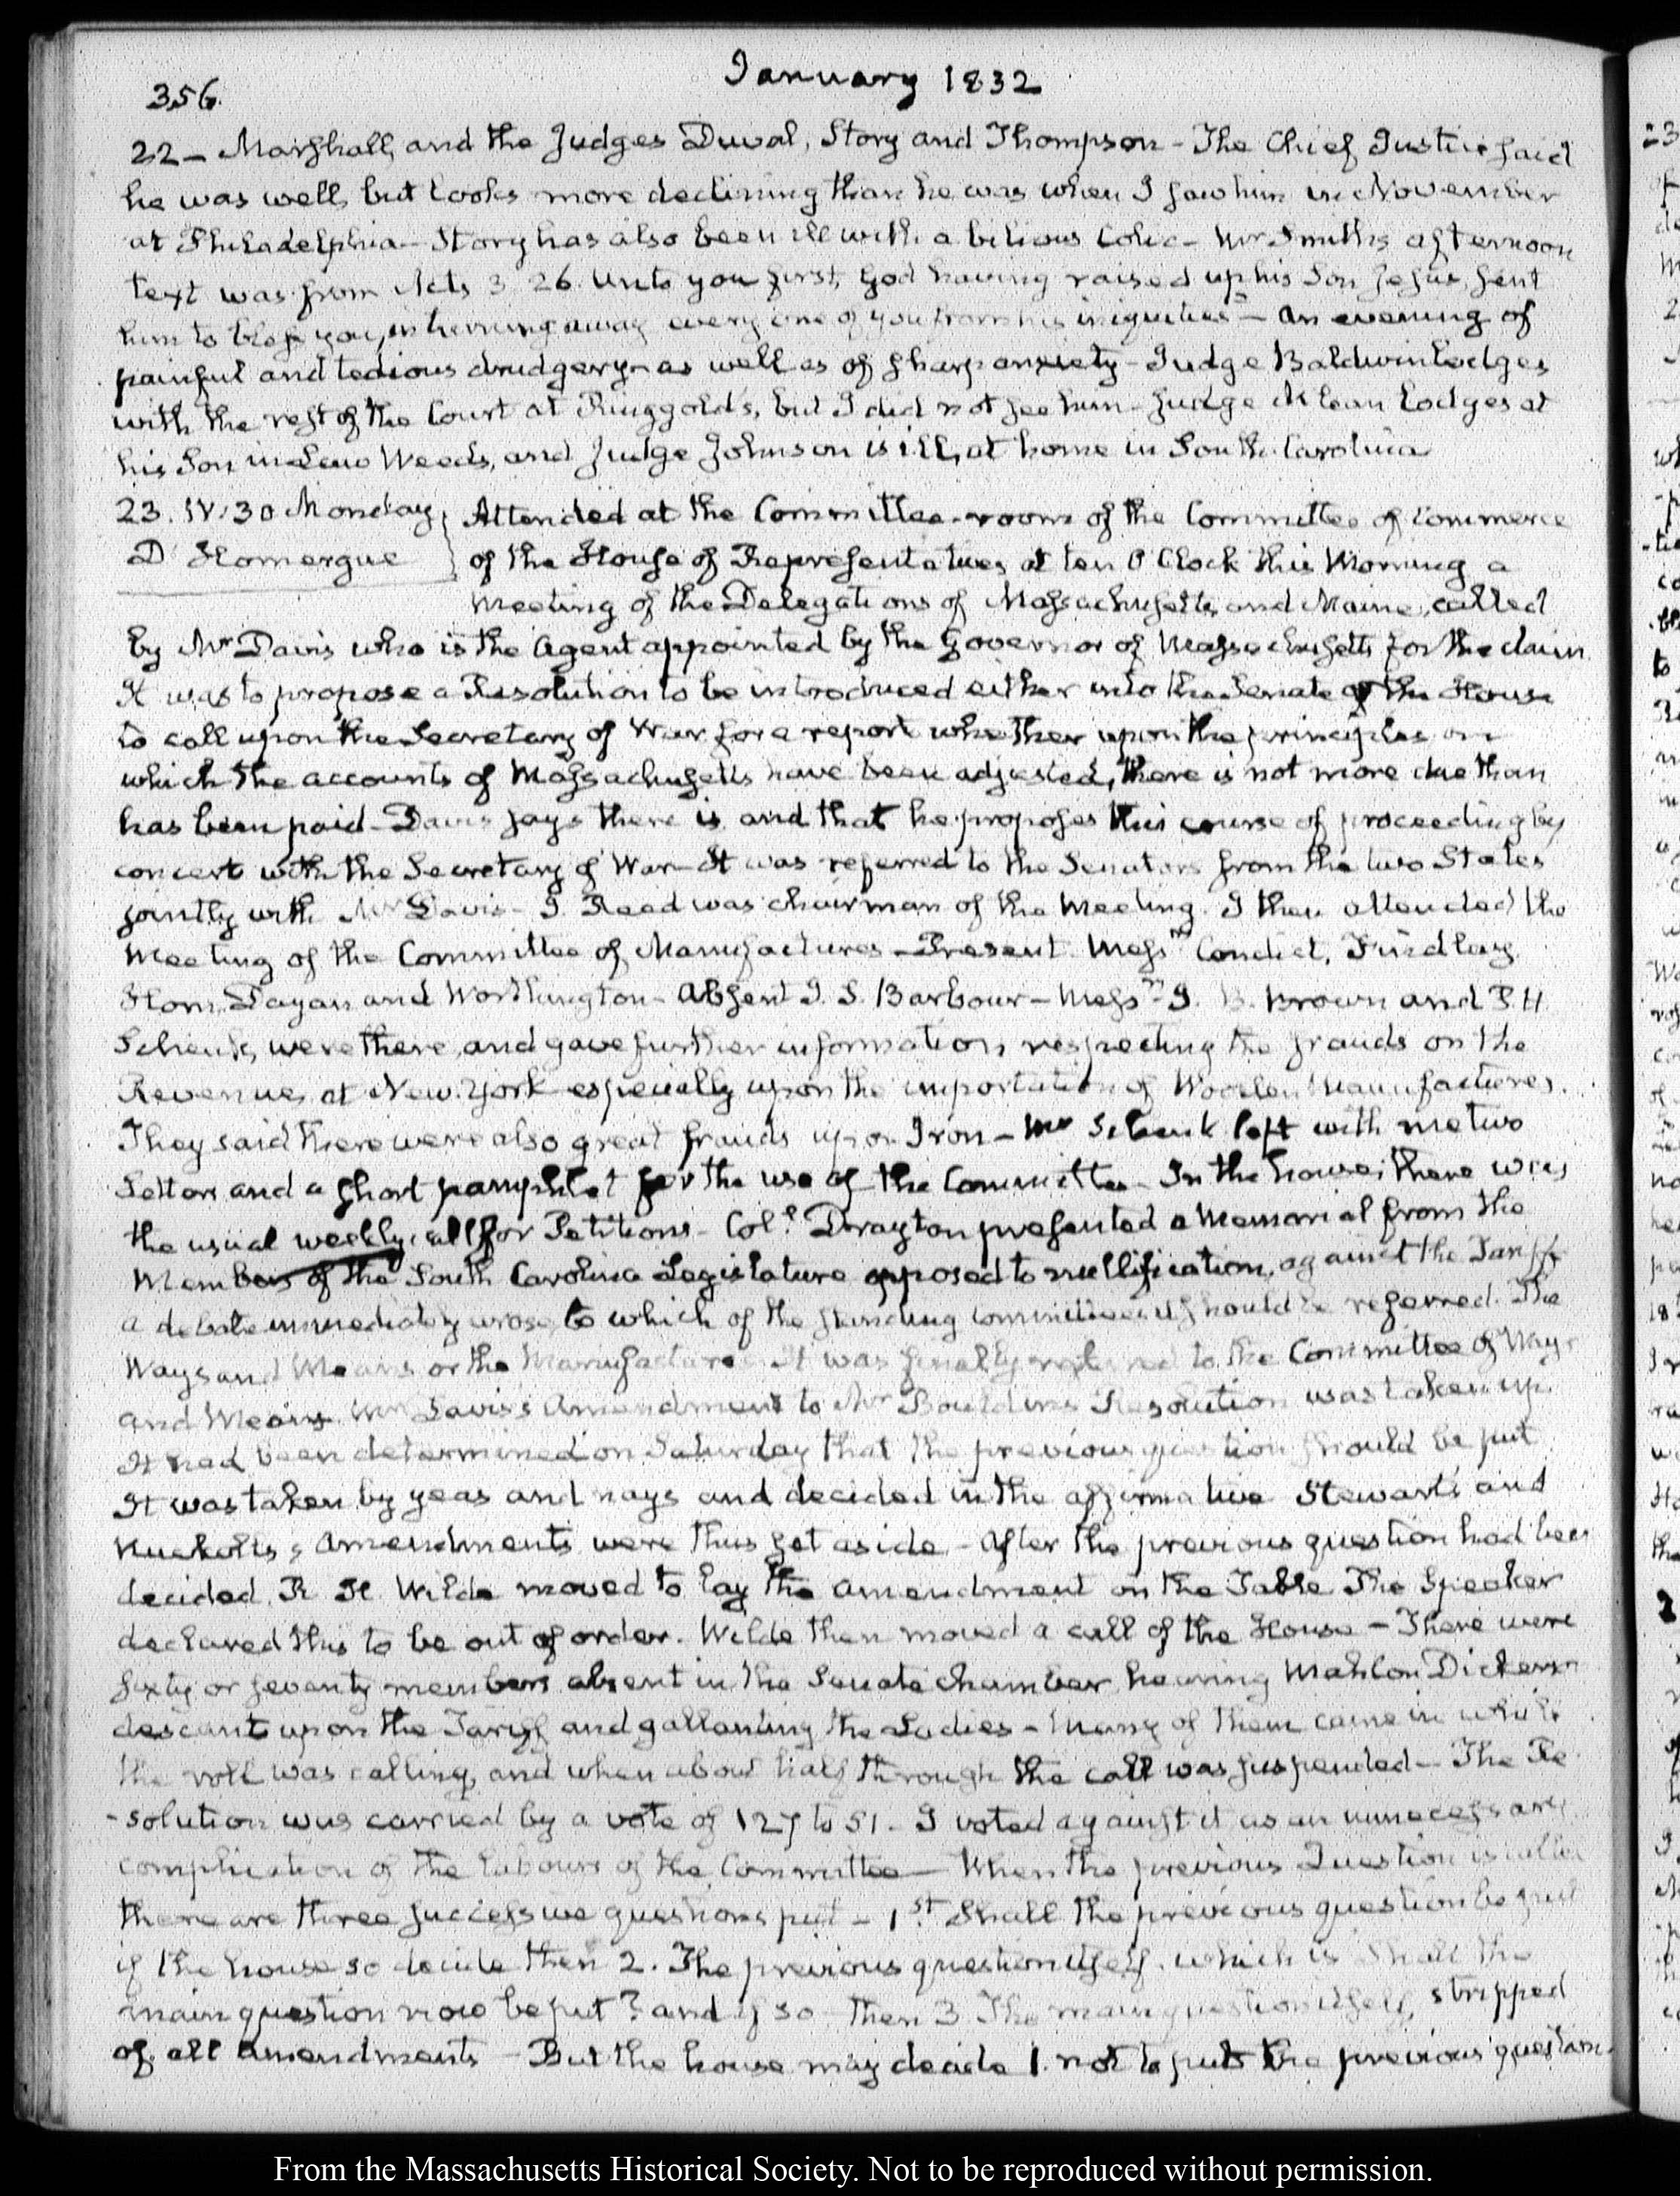 356.
January 1832
22 – Marshall, and the Judges Duval, Story and Thompson – The Chief Justice said
he was well, but looks more declining than he was when I saw him in November
at Philadelphia – Story has also been ill with a bilious Colic – Mr Smith's afternoon
text was from Acts 3 26. Unto you first, God having raised up his Son Jesus, sent
him to bless you, in turning away every one of you from his iniquities – An evening of
painful and tedious drudgery – as well as of sharp anxiety – Judge Baldwin lodges
with the rest of the Court at Ringgold's, but I did not see him – Judge McLean lodges at
his Son in Law Weeds, and Judge Johnson is ill, at home in South Carolina
23. IV:30 Monday
D'Homergue
Attended at the Committee-room of the Committee of Commerce
of the House of Representatives at ten O'Clock this Morning a
Meeting of the Delegations of Massachusetts and Maine, called
by Mr Davis who is the Agent appointed by the Governor of Massachusetts for the claim
It was to propose a Resolution to be introduced either into the Senate or the House
to call upon the Secretary of War for a report whether upon the principles on
which the accounts of Massachusetts have been adjusted, there is not more due than
has been paid – Davis says there is and that he proposes this course of proceeding by
concert with the Secretary of War – It was referred to the Senators from the two States
jointly with Mr Davis – J Reed was chairman of the Meeting. I then attended the
Meeting of the Committee of Manufactures – Present Messrs Condict, Findlay
Horn, Dayan and Worthington – Absent J. S. Barbour – Messrs J. B. Brown and P. H.
Schenk, were there, and gave further information respecting the frauds on the
Revenue, at New York especially upon the importation of Woollen Manufactures.
They said there were also great frauds upon Iron – Mr Schenk left with me two
Letters and a short pamphlet for the use of the Committee – In the house, there was
the usual weekly call for Petitions – Coll. Drayton presented a Memorial from the
Members of the South Carolina Legislature opposed to nullification, against the Tariff
a debate immediately arose, to which of the standing committees it should be referred. The
Ways and Means or the Manufactures It was finally referred to the Committee of Ways
and Means. Mr Davis's Amendment to Mr Bouldin's Resolution was taken up.
It had been determined on Saturday that the previous question should be put
It was taken by yeas and nays and decided in the affirmative Stewart's and
Nuckolls's Amendments were thus set aside – After the previous question had been
decided, R. H. Wilde moved to lay the amendment on the Table The Speaker
declared this to be out of order. Wilde then moved a call of the House – There were
sixty or seventy members absent in the Senate chamber, hearing Mahlon Dickerson
descant upon the Tariff and gallanting the Ladies – Many of them came in while
the roll was calling, and when about half through the call was suspended – The Re
-solution was carried by a vote of 127 to 51 – I voted against it as an unnecessary
complication of the labours of the Committee – When the previous Question is called
there are three successive questions put – 1st. Shall the previous question be put
if the house so decide then 2. The previous question itself. which is Shall the
main question now be put? and if so, then 3 The main question itself, stripped
of all amendments – But the house may decide 1. not to put the previous question.
From the Massachusetts Historical Society. Not to be reproduced without permission.